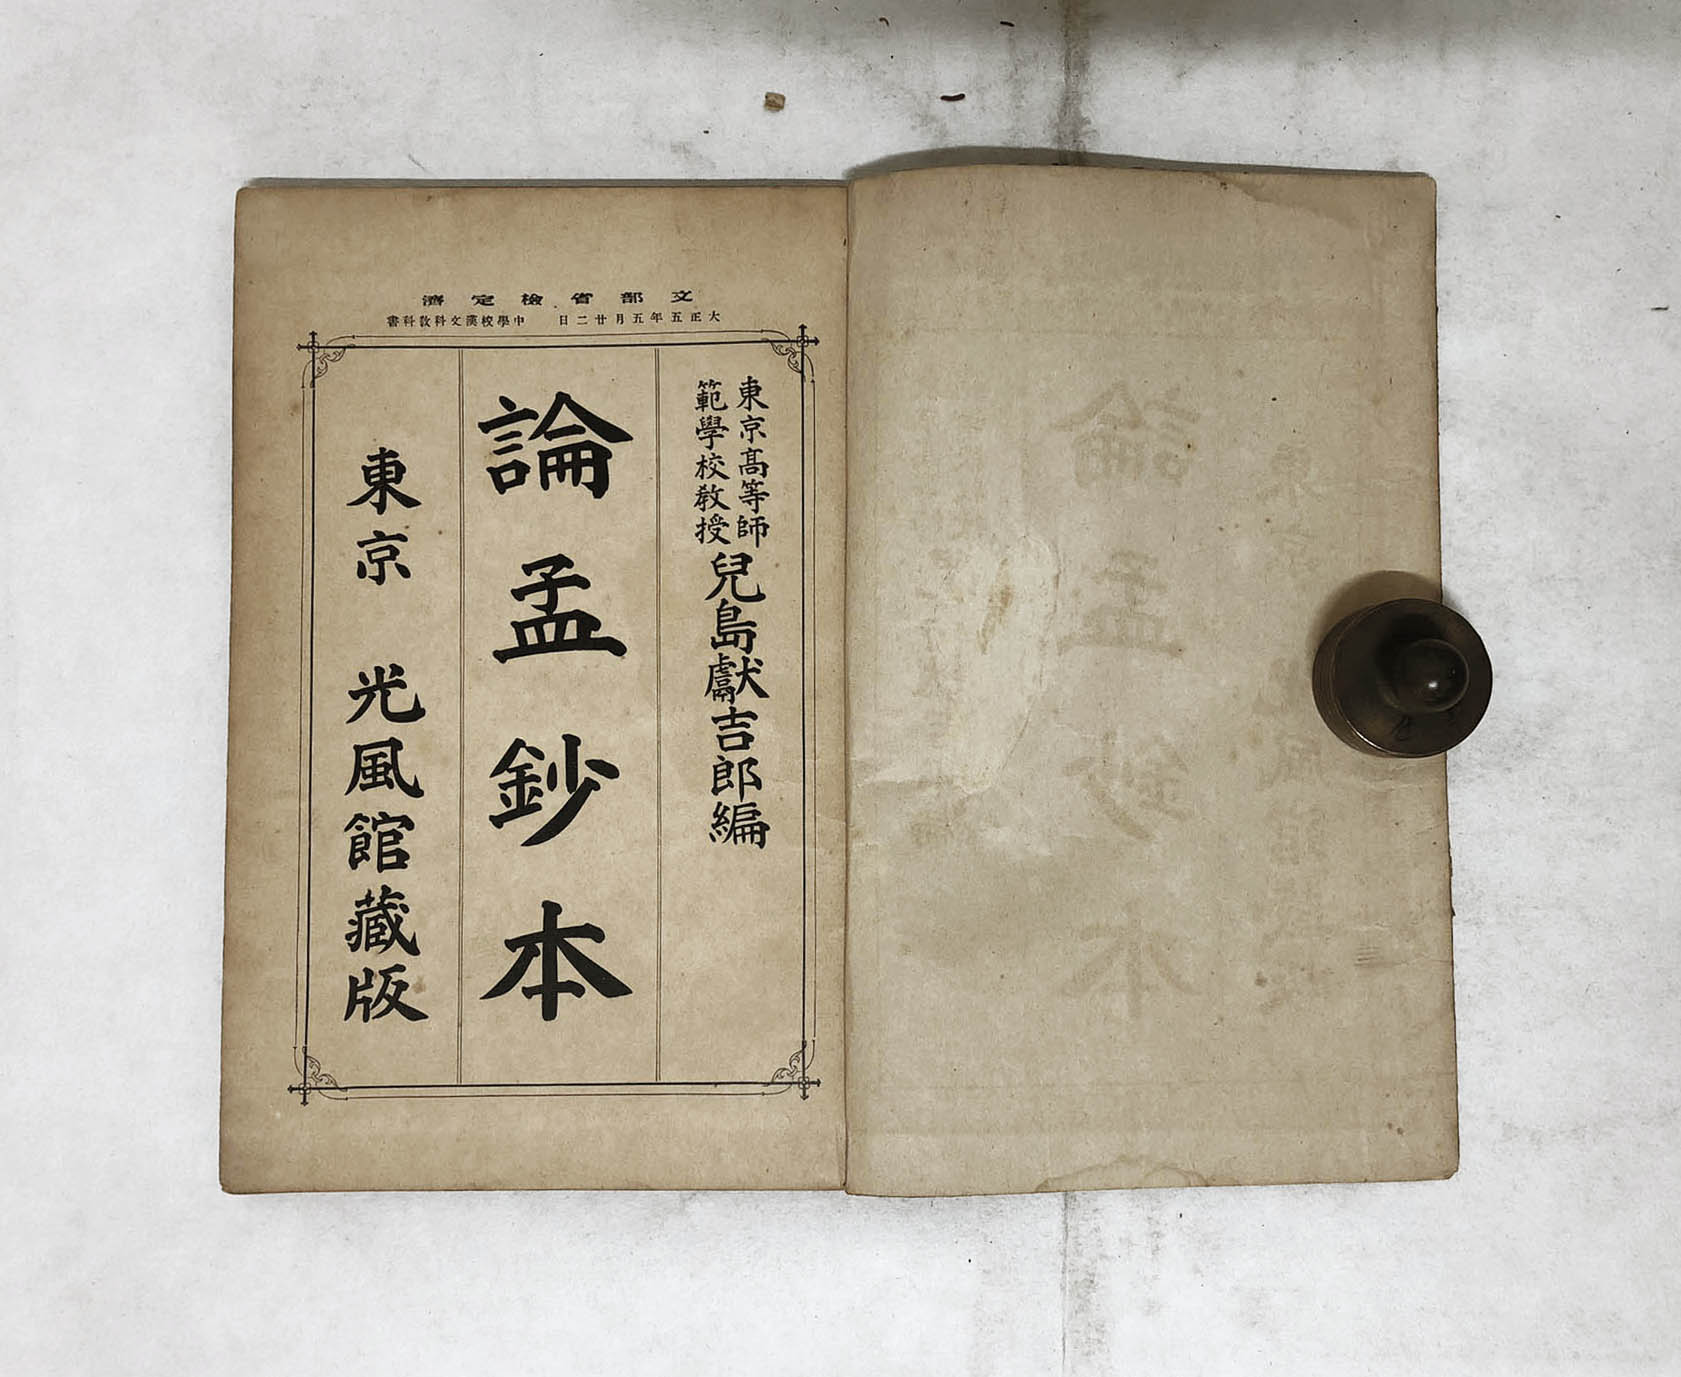 文部省檢定濟
大正五年五月廿二日　中學校漢文科教科書
東京高等師
範學校教授
兒島獻吉郎編
論孟鈔本
東京　光風館藏版